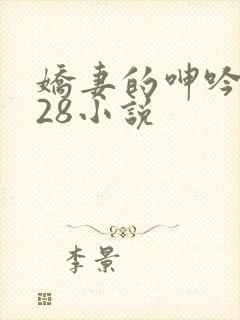 嬌妻的呻吟
28小說
李景